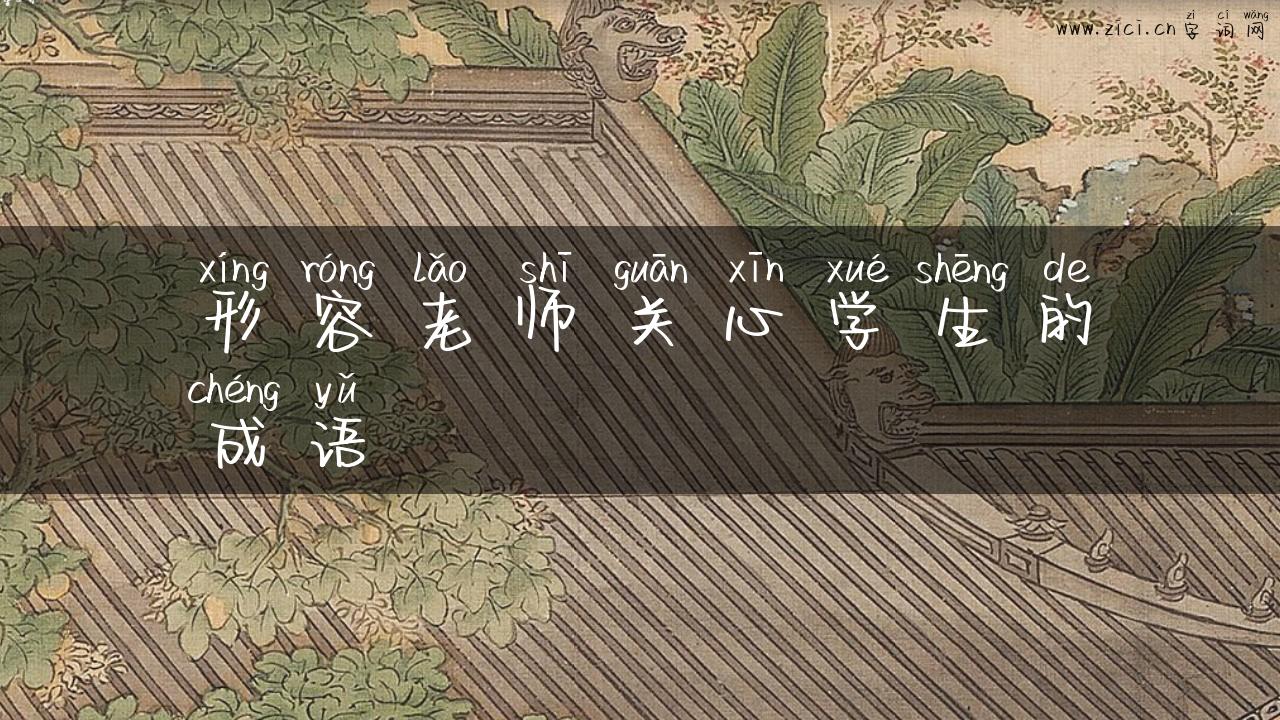 zì cí wǎng
www.zici.cn 字词网
xíng róng lǎo shī guān xīn xué shēng de
形容老师关心学生的
chéng yǔ
成语